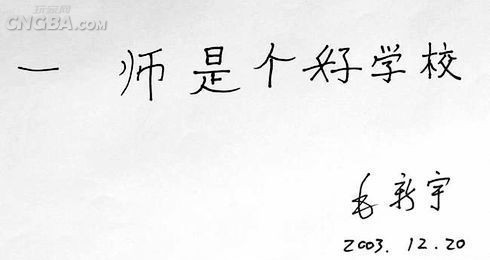 玩家网
CNGBA.com
一 师是个好学校
毛新宇
2003.12.20